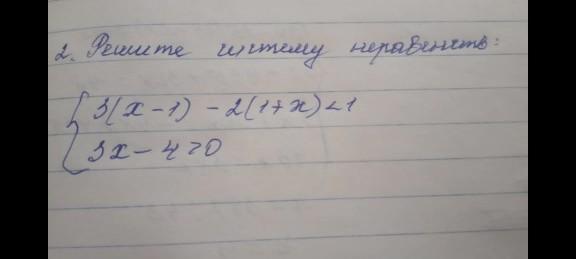 2. Решите систему неравенств:
3(x-1) - 2(1+x) < 1
3x - 4 > 0